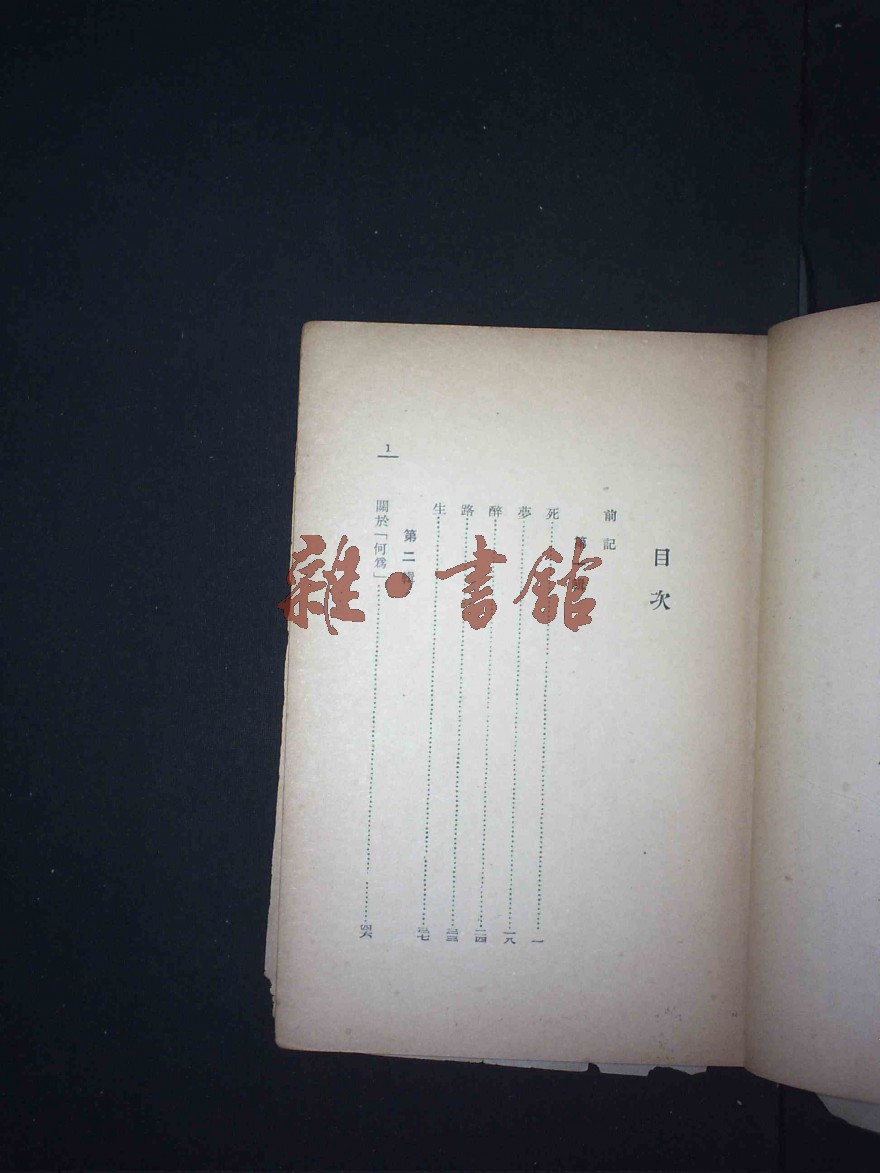 目次
前記
第
死……………一
夢……………一八
醉……………二四
路……………三三
生……………三七
第二輯
關於「何爲」……………四六
1
雜·書館